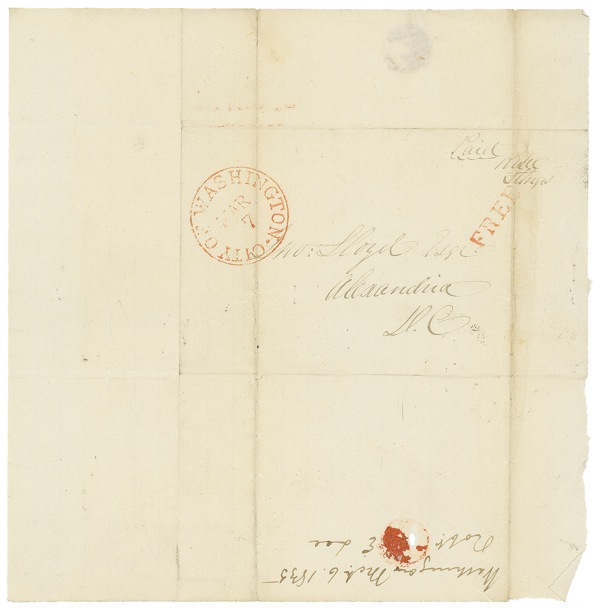 Paid
FREE
CITY OF WASHINGTON
MAR
7
Jno: Lloyd Esqr.
Alexandria
D. C.
Washington Mch. 6. 1835
Robt. E Lee